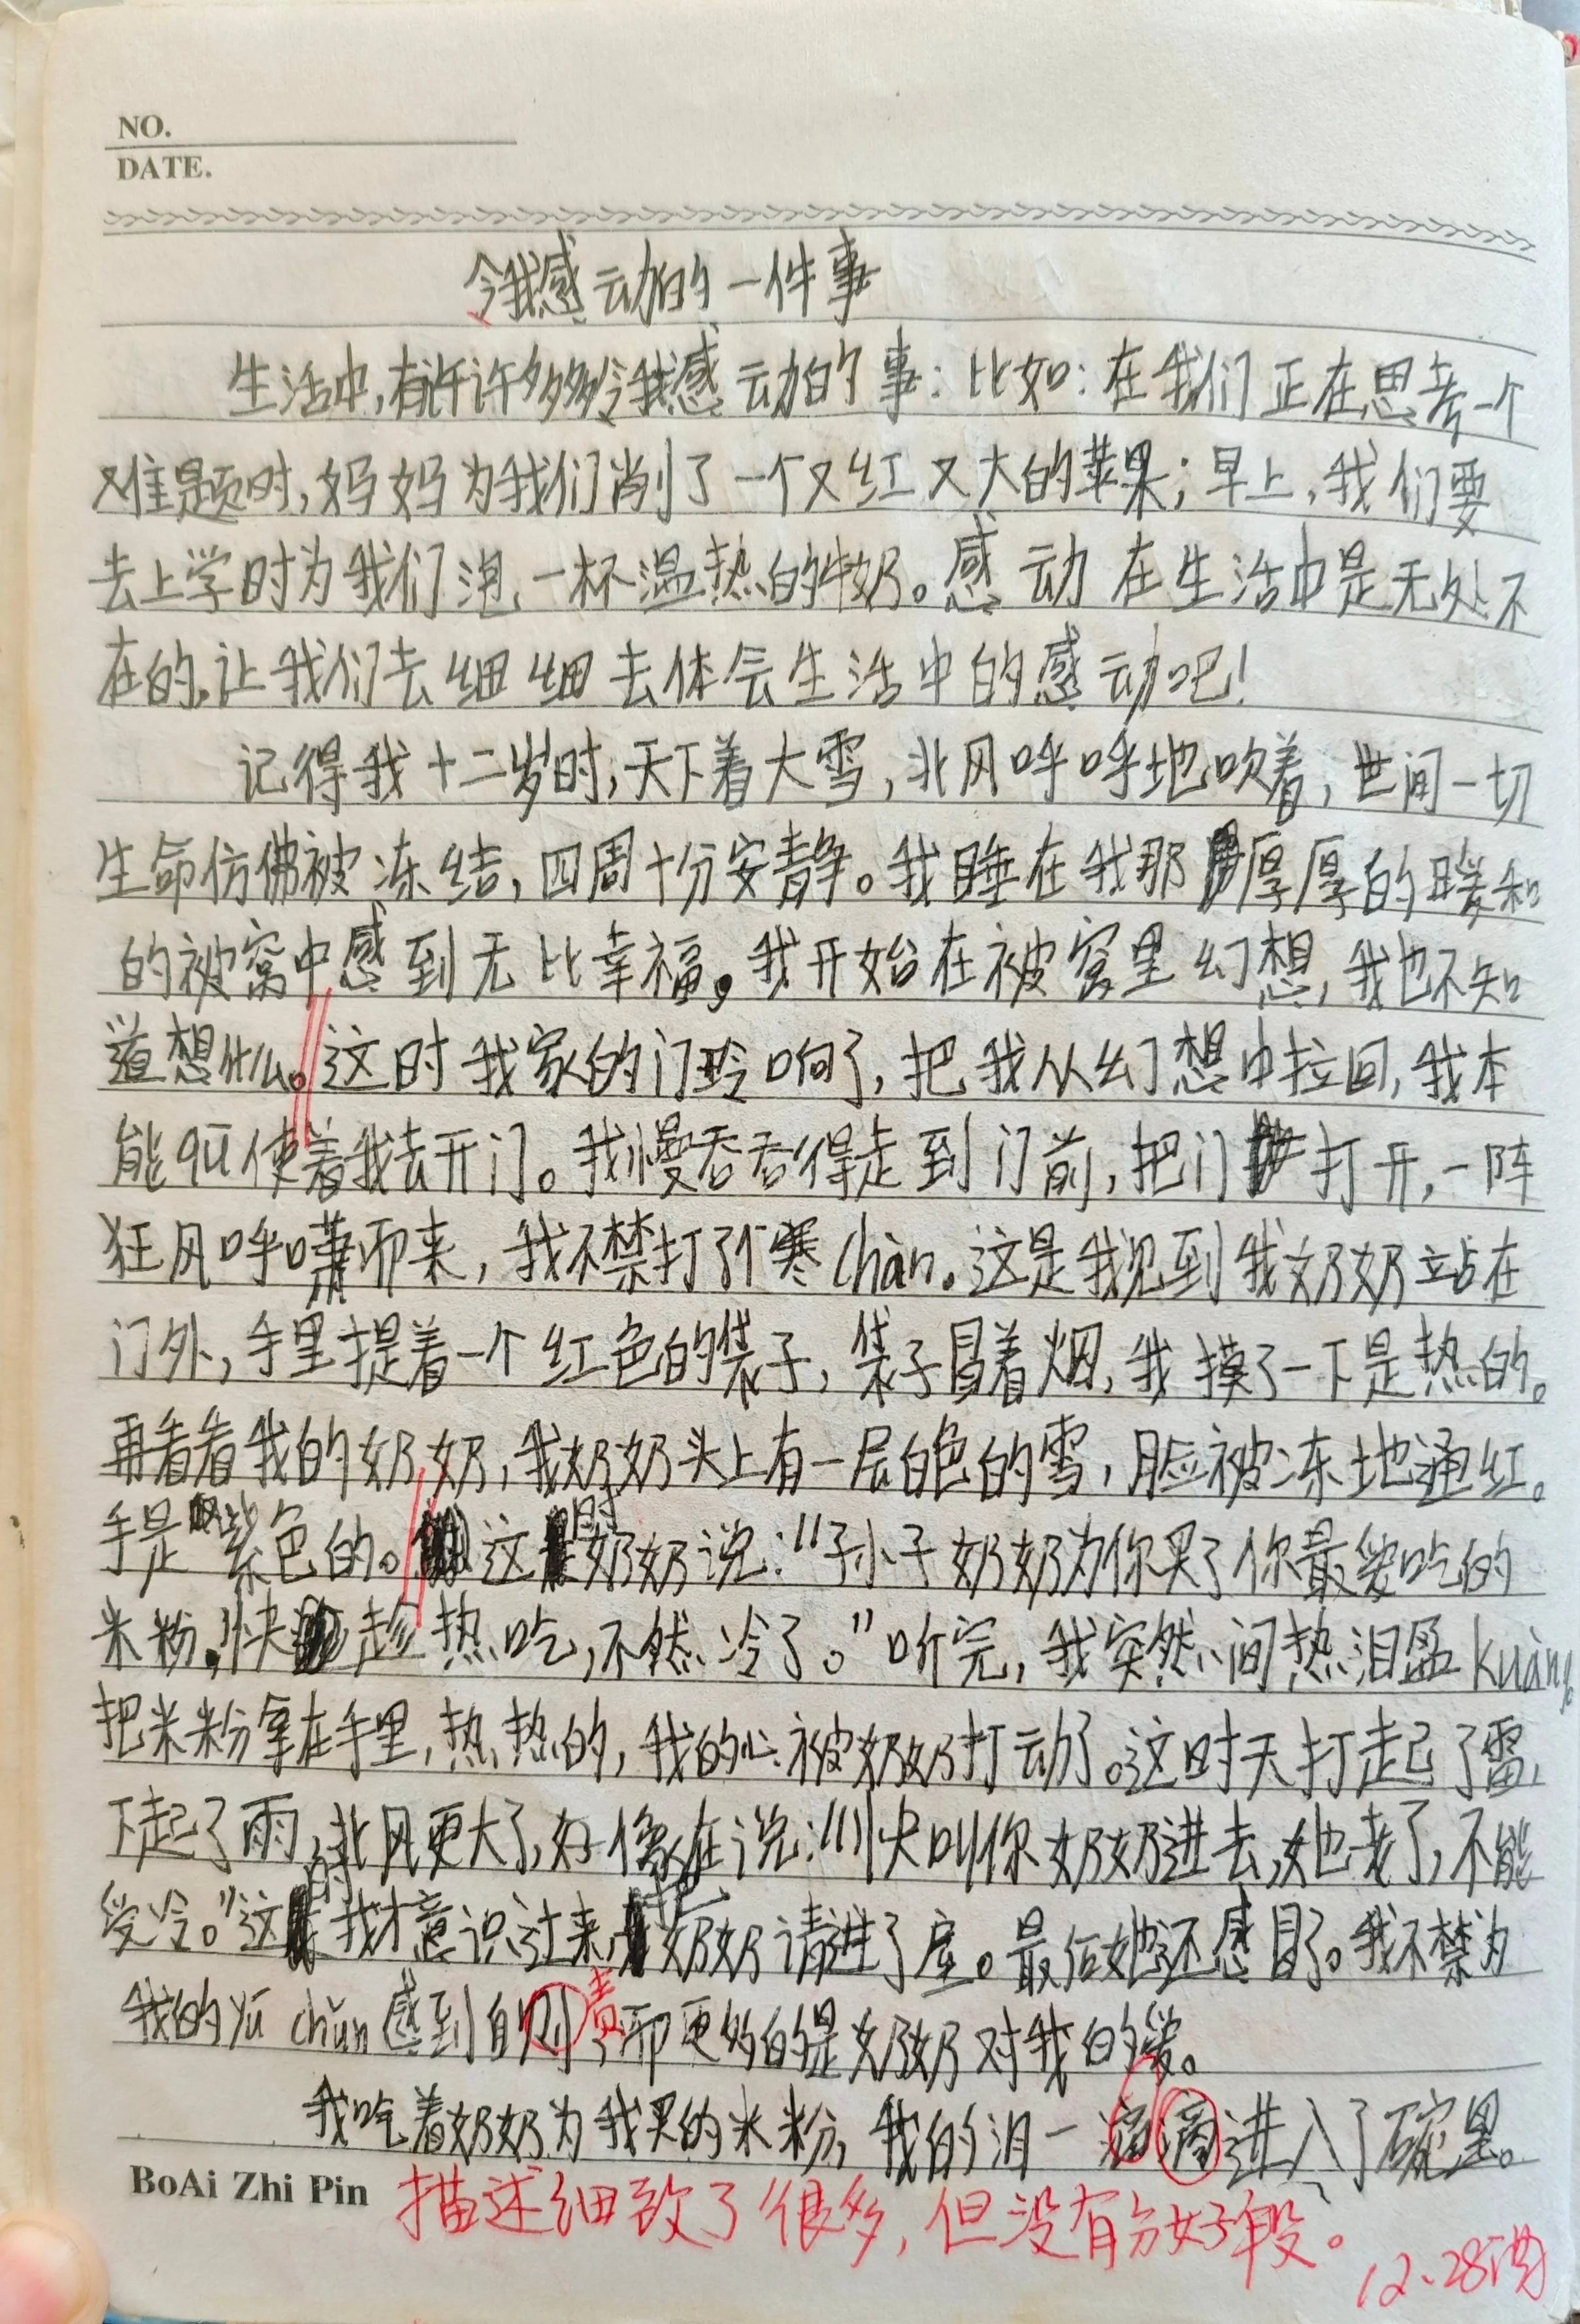 NO.
DATE.
令我感动的一件事
生活中,有许许多多令我感动的事:比如:在我们正在思考一个
难题时,妈妈为我们削了一个又红又大的苹果;早上,我们要
去上学时为我们泡一杯温热的牛奶。感动在生活中是无处不
在的,让我们去细细去体会生活中的感动吧!
记得我十二岁时,天下着大雪,北风呼呼地吹着,世间一切
生命仿佛被冻结,四周十分安静。我睡在我那厚厚的暖和
的被窝中感到无比幸福。我开始在被窝里幻想,我也不知
道想什么。这时我家的门铃响了,把我从幻想中拉回,我本
能驱使着我去开门。我慢吞吞得走到门前,把门打开,一阵
狂风呼啸而来,我不禁打了个寒chàn。这是我见到我奶奶站在
门外,手里提着一个红色的袋子,袋子冒着烟,我摸了一下是热的。
再看看我的奶奶,我奶奶头上有一层白色的雪,脸被冻地通红。
手是紫色的。这时奶奶说:"孙子奶奶为你买了你最爱吃的
米粉,快趁热吃,不然冷了。"听完,我突然间热泪盈kuàng。
把米粉拿在手里,热热的,我的心被奶奶打动了。这时天打起了雷,
下起了雨,北风更大了,好像在说:"快叫你奶奶进去,她老了,不能
受冷。"这时我才意识过来,把奶奶请进了屋。最后她还感冒了。我不禁为
我的yú chǔn感到自则责,而更多的是奶奶对我的爱。
我吃着奶奶为我买的米粉,我的泪一滴滴进入了碗里。
BoAi Zhi Pin
描述细致了很多,但没有分好段。
12.28